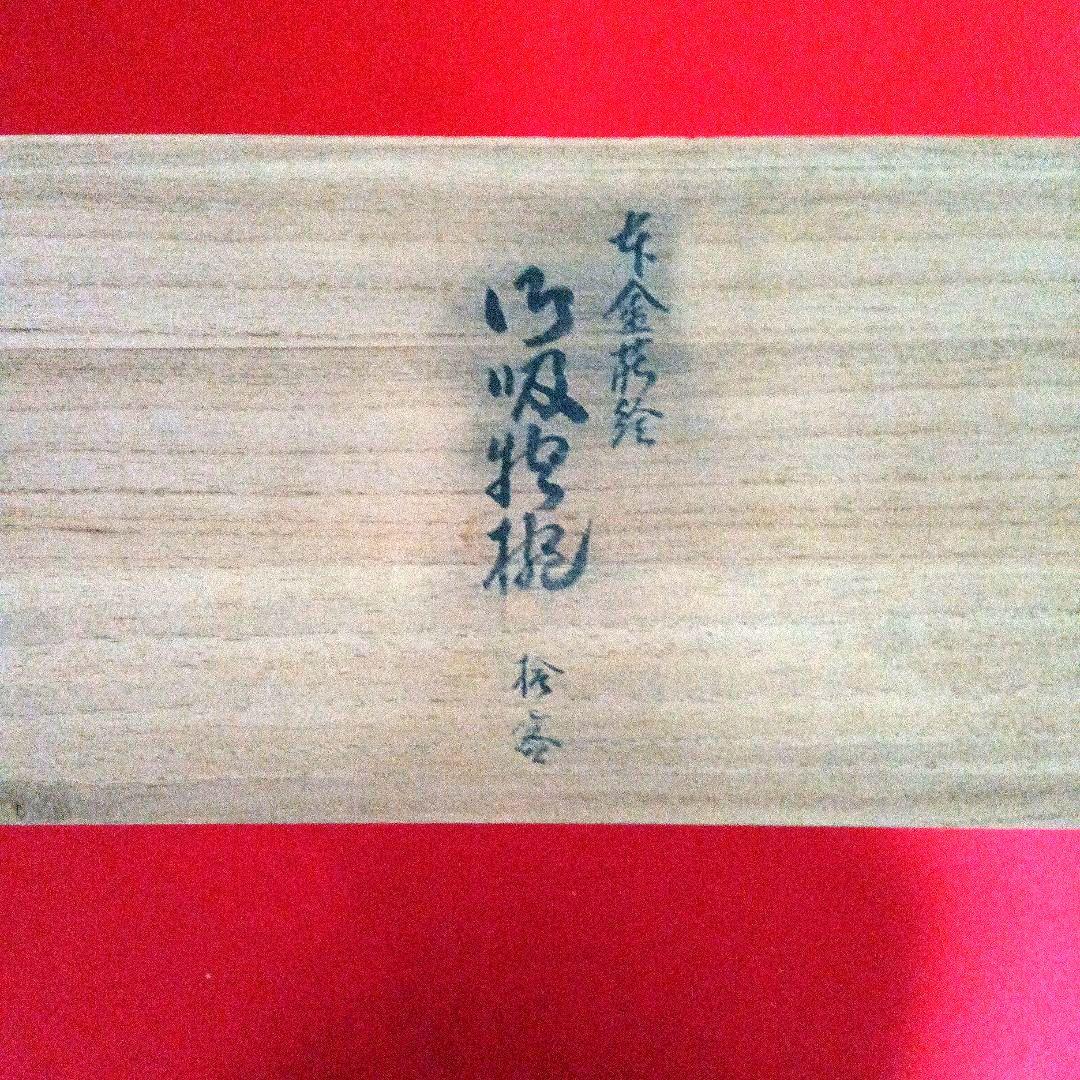 本金蒔絵
御吸物椀
拾客